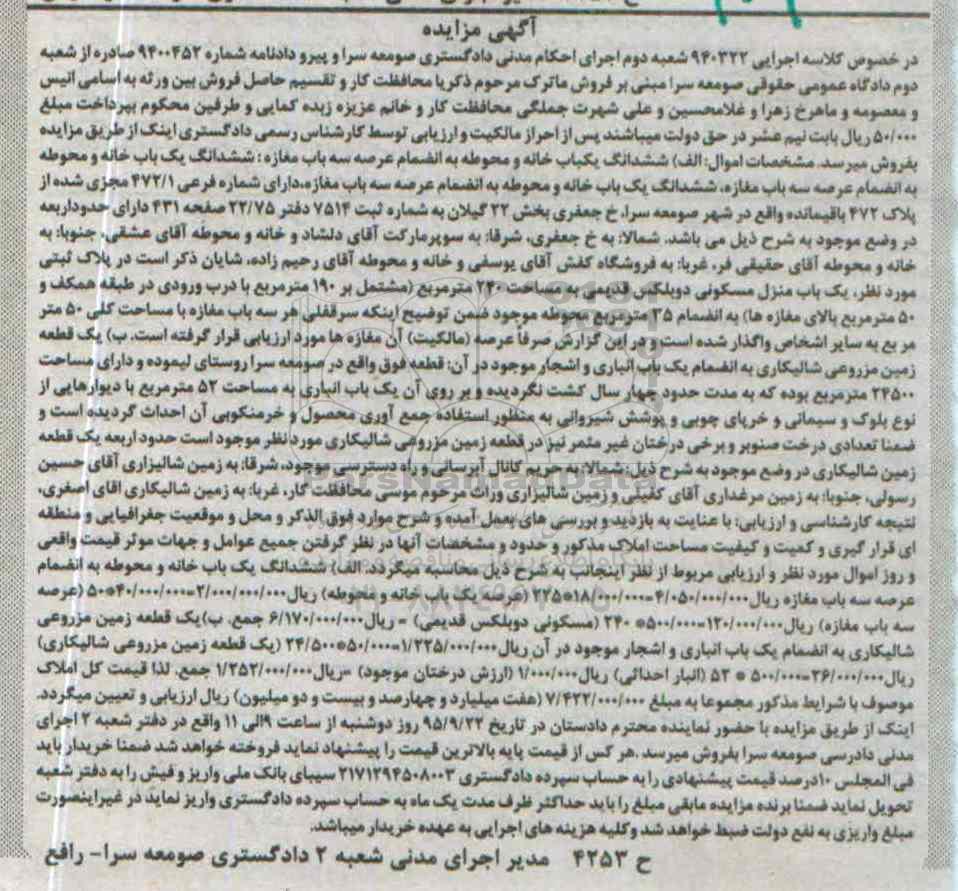 آگهی مزایده
در خصوص کلاسه اجرایی ۹۴۰۳۲۲ شعبه دوم اجرای احکام مدنی دادگستری صومعه سرا و پیرو دادنامه شماره ۹۴۰۰۴۵۲ صادره از شعبه
دوم دادگاه عمومی حقوقی صومعه سرا مبنی بر فروش ماترک مرحوم ذکریا محافظت کار و تقسیم حاصل فروش بین ورثه به اسامی انیس
و معصومه و ماهرخ زهرا و غلامحسین و علی شهرت جملگی محافظت کار و خانم عزیزه زبده کمایی و طرفین محکوم بپرداخت مبلغ
۵۰/۰۰۰ ریال بابت نیم عشر در حق دولت میباشند پس از احراز مالکیت و ارزیابی توسط کارشناس رسمی دادگستری اینک از طریق مزایده
بفروش میرسد. مشخصات اموال: الف) ششدانگ یکباب خانه و محوطه به انضمام عرصه سه باب مغازه : ششدانگ یک باب خانه و محوطه
به انضمام عرصه سه باب مغازه، ششدانگ یک باب خانه و محوطه به انضمام عرصه سه باب مغازه،دارای شماره فرعی ۴۷۲/۱ مجزی شده از
پلاک ۴۷۲ باقیمانده واقع در شهر صومعه سرا، خ جعفری بخش ۲۲ گیلان به شماره ثبت ۷۵۱۴ دفتر ۲۲/۷۵ صفحه ۴۳۱ دارای حدوداربعه
در وضع موجود به شرح ذیل می باشد. شمالا: به خ جعفری، شرقا: به سوپرمارکت آقای دلشاد و خانه و محوطه آقای عشقی، جنوبا: به
خانه و محوطه آقای حقیقی فر، غربا: به فروشگاه کفش آقای یوسفی و خانه و محوطه آقای رحیم زاده، شایان ذکر است در پلاک ثبتی
مورد نظر، یک باب منزل مسکونی دوبلکس قدیمی به مساحت ۲۴۰ مترمربع (مشتمل بر ۱۹۰ مترمربع با درب ورودی در طبقه همکف و
۵۰ مترمربع بالای مغازه ها) به انضمام ۳۵ مترمربع محوطه موجود ضمن توضیح اینکه سرقفلی هر سه باب مغازه با مساحت کلی ۵۰ متر
مربع به سایر اشخاص واگذار شده است و در این گزارش صرفاً عرصه (مالکیت) آن مغازه ها مورد ارزیابی قرار گرفته است. ب) یک قطعه
زمین مزروعی شالیکاری به انضمام یک باب انباری و اشجار موجود در آن: قطعه فوق واقع در صومعه سرا روستای لیموده و دارای مساحت
۲۴۵۰۰ مترمربع بوده که به مدت حدود چهار سال کشت نگردیده و بر روی آن یک باب انباری به مساحت ۵۲ مترمربع با دیوارهایی از
نوع بلوک و سیمانی و خرپای چوبی و پوشش شیروانی به منظور استفاده جمع آوری محصول و خرمنکوبی آن احداث گردیده است و
ضمنا تعدادی درخت صنوبر و برخی درختان غیر مثمر نیز در قطعه زمین مزروعی شالیکاری موردنظر موجود است حدود اربعه یک قطعه
زمین شالیکاری در وضع موجود به شرح ذیل: شمالا: به حریم کانال آبرسانی و راه دسترسی موجود، شرقا: به زمین شالیزاری آقای حسین
رسولی، جنوبا: به زمین مرغداری آقای کفیلی و زمین شالیزاری وراث مرحوم موسی محافظت کار، غربا: به زمین شالیکاری اقای اصغری،
نتیجه کارشناسی و ارزیابی: با عنایت به بازدید و بررسی های بعمل آمده و شرح موارد فوق الذکر و محل و موقعیت جغرافیایی و منطقه
ای قرار گیری و کمیت و کیفیت مساحت املاک مذکور و حدود و مشخصات آنها در نظر گرفتن جمیع عوامل و جهات موثر قیمت واقعی
و روز اموال مورد نظر و ارزیابی مربوط از نظر اینجانب به شرح ذیل محاسبه میگردد. الف) ششدانگ یک باب خانه و محوطه به انضمام
عرصه سه باب مغازه ریال۴/۰۵۰/۰۰۰/۰۰۰=۱۸/۰۰۰/۰۰۰*۲۲۵ (عرصه یک باب خانه و محوطه) ریال۲/۰۰۰/۰۰۰/۰۰۰=۴۰/۰۰۰/۰۰۰*۵۰ (عرصه
سه باب مغازه) ریال۱۲۰/۰۰۰/۰۰۰=۵۰۰/۰۰۰* ۲۴۰ (مسکونی دوبلکس قدیمی) = ریال۶/۱۷۰/۰۰۰/۰۰۰ جمع. ب)یک قطعه زمین مزروعی
شالیکاری به انضمام یک باب انباری و اشجار موجود در آن ریال۱/۲۲۵/۰۰۰/۰۰۰=۵۰/۰۰۰*۲۴/۵۰۰ (یک قطعه زمین مزروعی شالیکاری)
ریال۲۶/۰۰۰/۰۰۰=۵۰۰/۰۰۰ * ۵۲ (انبار احداثی) ریال۱/۰۰۰/۰۰۰ (ارزش درختان موجود) =ریال۱/۲۵۲/۰۰۰/۰۰۰ جمع. لذا قیمت کل املاک
موصوف با شرایط مذکور مجموعا به مبلغ ۷/۴۲۲/۰۰۰/۰۰۰ (هفت میلیارد و چهارصد و بیست و دو میلیون) ریال ارزیابی و تعیین میگردد.
اینک از طریق مزایده با حضور نماینده محترم دادستان در تاریخ ۹۵/۹/۲۲ روز دوشنبه از ساعت ۹الی ۱۱ واقع در دفتر شعبه ۲ اجرای
مدنی دادرسی صومعه سرا بفروش میرسد .هر کس از قیمت پایه بالاترین قیمت را پیشنهاد نماید فروخته خواهد شد ضمنا خریدار باید
فی المجلس ۱۰درصد قیمت پیشنهادی را به حساب سپرده دادگستری ۲۱۷۱۲۹۴۵۰۸۰۰۳ سیبای بانک ملی واریز و فیش را به دفتر شعبه
تحویل نماید ضمنا برنده مزایده مابقی مبلغ را باید حداکثر ظرف مدت یک ماه به حساب سپرده دادگستری واریز نماید در غیراینصورت
مبلغ واریزی به نفع دولت ضبط خواهد شد وکلیه هزینه های اجرایی به عهده خریدار میباشد.
ح ۴۲۵۳ مدیر اجرای مدنی شعبه ۲ دادگستری صومعه سرا- رافع